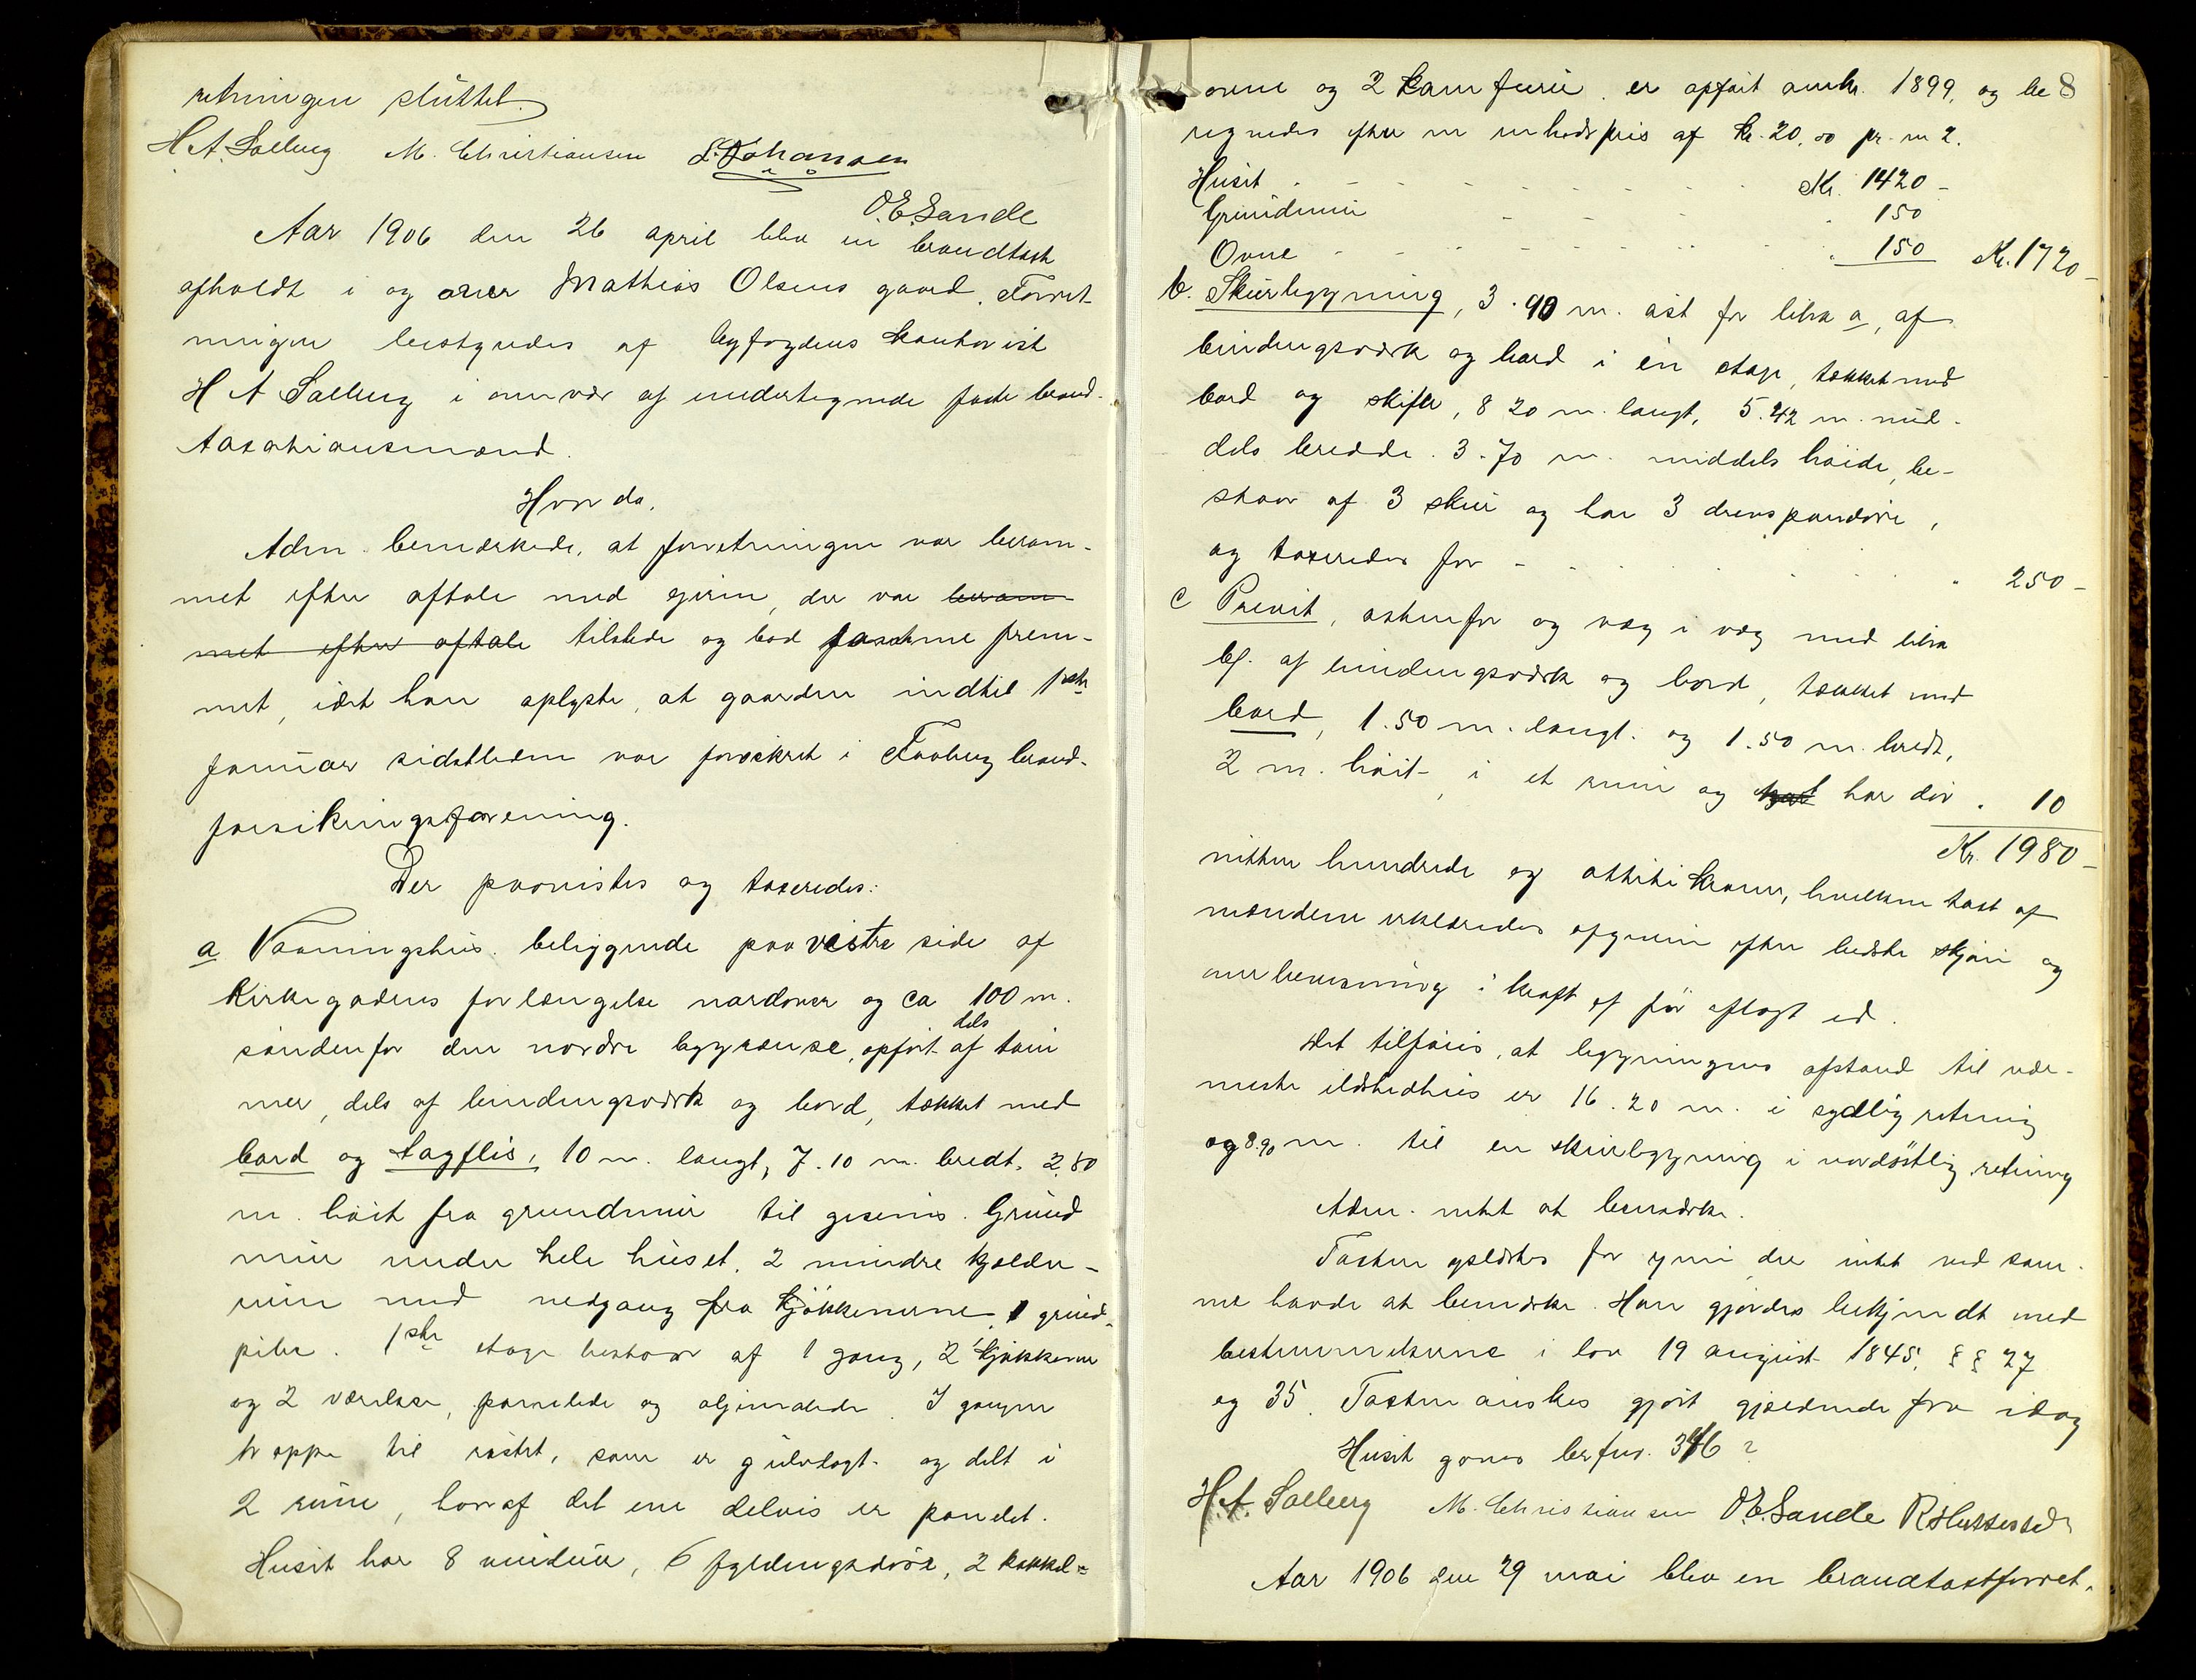 retningen sluttet.
H. A. Solberg M. Christiansen L. Johansen
O. E. Sande
Aar 1906 den 26 april blev en brandtakst
afholdt i og over Mathias Olsens gaard. Forret-
ningen bestyredes af byfogdens kontorist
H A Solberg i overvær af undertegnede faste brand-
taxationsmænd.
Hvor da,
Adm. bemærkede, at forretningen var beram-
met efter aftale med eieren, der var beram-
met efter aftale tilstede og bød taxterne frem-
met, idet han oplyste, at gaarden indtil 1ste
januar sidstleden var forsikret i Faaberg brand-
forsikringsforening.
Der paavistes og taxeredes:
a Vaaningshus. beliggende paa vestre side af
Kirkegadens forlængelse nordover og ca 100 m.
søndenfor den nordre bygrænse, opført dels af tøm
mer, dels af bindingsværk og bord, tækket med
bord og tagflis, 10 m. langt, 7.10 m. bredt, 2.80
m. høit fra grundmur til gesims. Grund
mur under hele huset. 2 mindre kjelder-
rum med nedgang fra kjøkkenerne, 1 grund-
piber. 1ste etage bestaar af 1 gang, 2 kjøkkener
og 2 værelser, panelede og oljemalede. I gangen
trappe til røstet, som er gulvlagt og delt i
2 rum, hvoraf det ene delvis er panelet.
Huset har 8 vinduer, 6 fyldingsdøre, 2 kakkel-
8
ovne og 2 komfurer. er opført omkr. 1899, og be
regnedes efter en enhedspris af kr. 20,00 pr. m 2.
Huset - - - - - - Kr. 1420 -
Grundmur - - - " 150
Ovne - - - - - " 150 Kr. 1720-
b. Skurbygning, 3.90 m. øst for litra a, af
bindingsværk og bord i én etage, tækket med
bord og skifer, 8 20 m. langt, 5.42 m. mid-
dels bredde. 3.70 m. middels høide, be-
staar af 3 skur og har 3 drevspandøre,
og taxeredes for - - - - " 250 -
c Privet, østenfor og væg i væg med litra
b. af bindingsværk og bord, tækket med
bord, 1.50 m. langt. og 1.50 m. bredt,
2 m. høit, i et rum og har dør " 10
Kr. 1980-
nitten hundrede og ottiti kroner, hvilken takst af
mændene erklæredes afgiven efter bedste skjøn og
overbevisning i kraft af før aflagt ed.
Det tilføies, at bygningens afstand til nær-
meste ildstedhus er 16.20 m. i sydlig retning
og 8.90 m. til en skurbygning i nordøstlig retning
Adm. intet at bemærke.
Taxten oplæstes for eieren der intet ved sam-
me havde at bemærke. Han gjordes bekjendt med
bestemmelserne i lov 19 august 1845, § § 27
og 35. Taxten ønskes gjort gjældende fra idag
Huset gaves brfns. 346 ?
H. A. Solberg M. Christiansen O. E. Sande
Aar 1906 den 29 mai blev en brandtaxtforret-